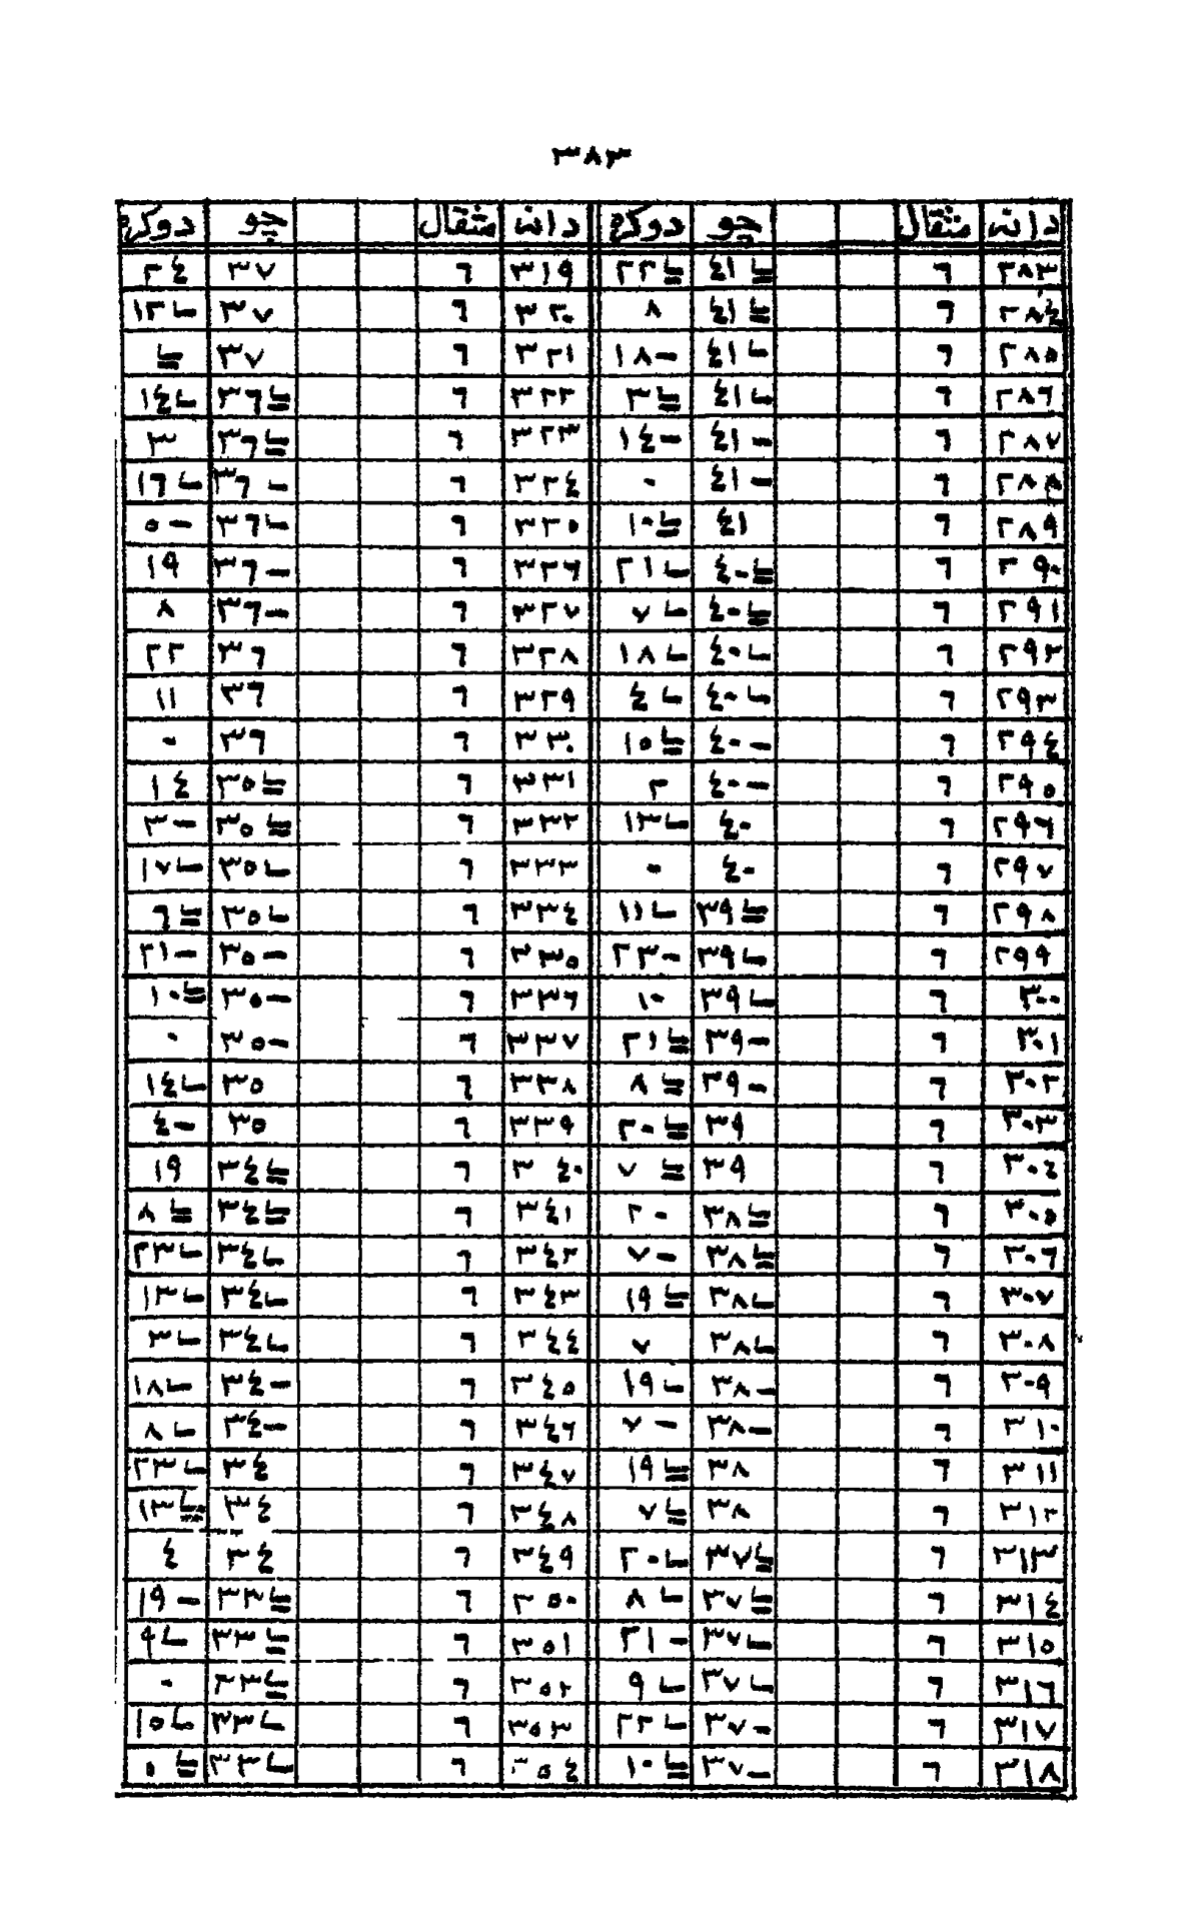 ٣٨٣
دانه مثقال چو دوكره دانه مثقال چو دوكره
٢٨٣ ٦ ٤١ـا= ٢٢ـا= ٣١٩ ٦ ٣٧ ٢٤
٢٨٤ ٦ ٤١ـا= ٨ ٣٢٠ ٦ ٣٧ ١٢ـا
٢٨٥ ٦ ٤١ـا ١٨- ٣٢١ ٦ ٣٧ ـا=
٢٨٦ ٦ ٤١ـا ٣ـا= ٣٢٢ ٦ ٣٦ـا= ١٤ـا
٢٨٧ ٦ ٤١- ١٤- ٣٢٣ ٦ ٣٦ـا= ٣
٢٨٨ ٦ ٤١- ٠ ٣٢٤ ٦ ٣٦ـا ١٦ـا
٢٨٩ ٦ ٤١ ١٠ـا= ٣٢٥ ٦ ٣٦ـا ٥-
٢٩٠ ٦ ٤٠ـا= ٢١ـا ٣٢٦ ٦ ٣٦- ١٩
٢٩١ ٦ ٤٠ـا= ٧ـا ٣٢٧ ٦ ٣٦- ٨
٢٩٢ ٦ ٤٠ـا ١٨ـا ٣٢٨ ٦ ٣٦ ٢٢
٢٩٣ ٦ ٤٠ـا ٤ـا ٣٢٩ ٦ ٣٦ ١١
٢٩٤ ٦ ٤٠- ١٥ـا= ٣٣٠ ٦ ٣٦ ٠
٢٩٥ ٦ ٤٠- ٢ ٣٣١ ٦ ٣٥ـا= ١٤
٢٩٦ ٦ ٤٠ ١٣ـا ٣٣٢ ٦ ٣٥ـا= ٣-
٢٩٧ ٦ ٤٠ ٠ ٣٣٣ ٦ ٣٥ـا ١٧ـا
٢٩٨ ٦ ٣٩ـا= ١١ـا ٣٣٤ ٦ ٣٥ـا ٦ـا=
٢٩٩ ٦ ٣٩ـا ٢٣- ٣٣٥ ٦ ٣٥- ٢١-
٣٠٠ ٦ ٣٩ـا ١٠ ٣٣٦ ٦ ٣٥- ١٠ـا=
٣٠١ ٦ ٣٩- ٢١ـا= ٣٣٧ ٦ ٣٥- ٠
٣٠٢ ٦ ٣٩- ٨ـا= ٣٣٨ ٦ ٣٥ ١٤ـا
٣٠٣ ٦ ٣٩ ٢٠ـا= ٣٣٩ ٦ ٣٥ ٤-
٣٠٤ ٦ ٣٩ ٧ـا= ٣٤٠ ٦ ٣٤ـا= ١٩
٣٠٥ ٦ ٣٨ـا= ٢٠ ٣٤١ ٦ ٣٤ـا= ٨ـا=
٣٠٦ ٦ ٣٨ـا= ٧- ٣٤٢ ٦ ٣٤ـا ٢٣ـا
٣٠٧ ٦ ٣٨ـا ١٩ـا= ٣٤٣ ٦ ٣٤ـا ١٣ـا
٣٠٨ ٦ ٣٨ـا ٧ ٣٤٤ ٦ ٣٤ـا ٣ـا
٣٠٩ ٦ ٣٨- ١٩ـا ٣٤٥ ٦ ٣٤- ١٨ـا
٣١٠ ٦ ٣٨- ٧- ٣٤٦ ٦ ٣٤- ٨ـا
٣١١ ٦ ٣٨ ١٩ـا= ٣٤٧ ٦ ٣٤ ٢٣ـا
٣١٢ ٦ ٣٨ ٧ـا= ٣٤٨ ٦ ٣٤ ١٣ـا=
٣١٣ ٦ ٣٧ـا= ٢٠ـا ٣٤٩ ٦ ٣٤ ٤
٣١٤ ٦ ٣٧ـا= ٨ـا ٣٥٠ ٦ ٣٣ـا= ١٩-
٣١٥ ٦ ٣٧ـا ٢١- ٣٥١ ٦ ٣٣ـا= ٩ـا
٣١٦ ٦ ٣٧ـا ٩ـا ٣٥٢ ٦ ٣٣ـا= ٠
٣١٧ ٦ ٣٧- ٢٢ـا ٣٥٣ ٦ ٣٣ـا ١٥ـا
٣١٨ ٦ ٣٧- ١٠ـا= ٣٥٤ ٦ ٣٣ـا ٥ـا=